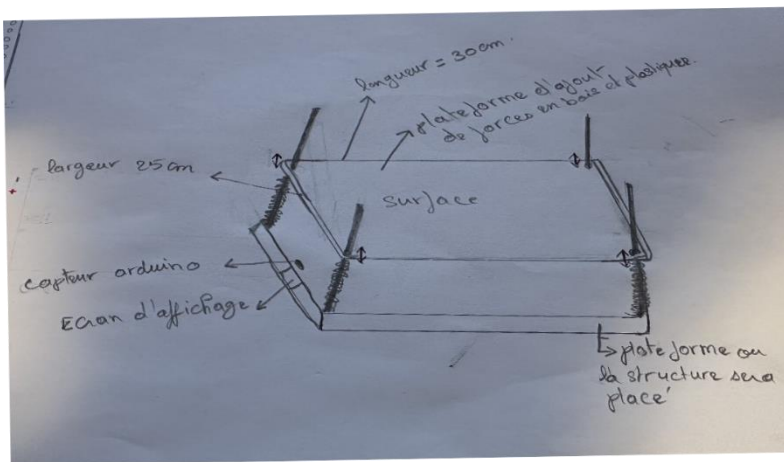 longueur = 30cm.
plateforme d'ajout
de forces en bois et plastiques.
largeur 25cm
surface
capteur arduino
Ecran d'affichage
plate forme ou
la structure sera
placé